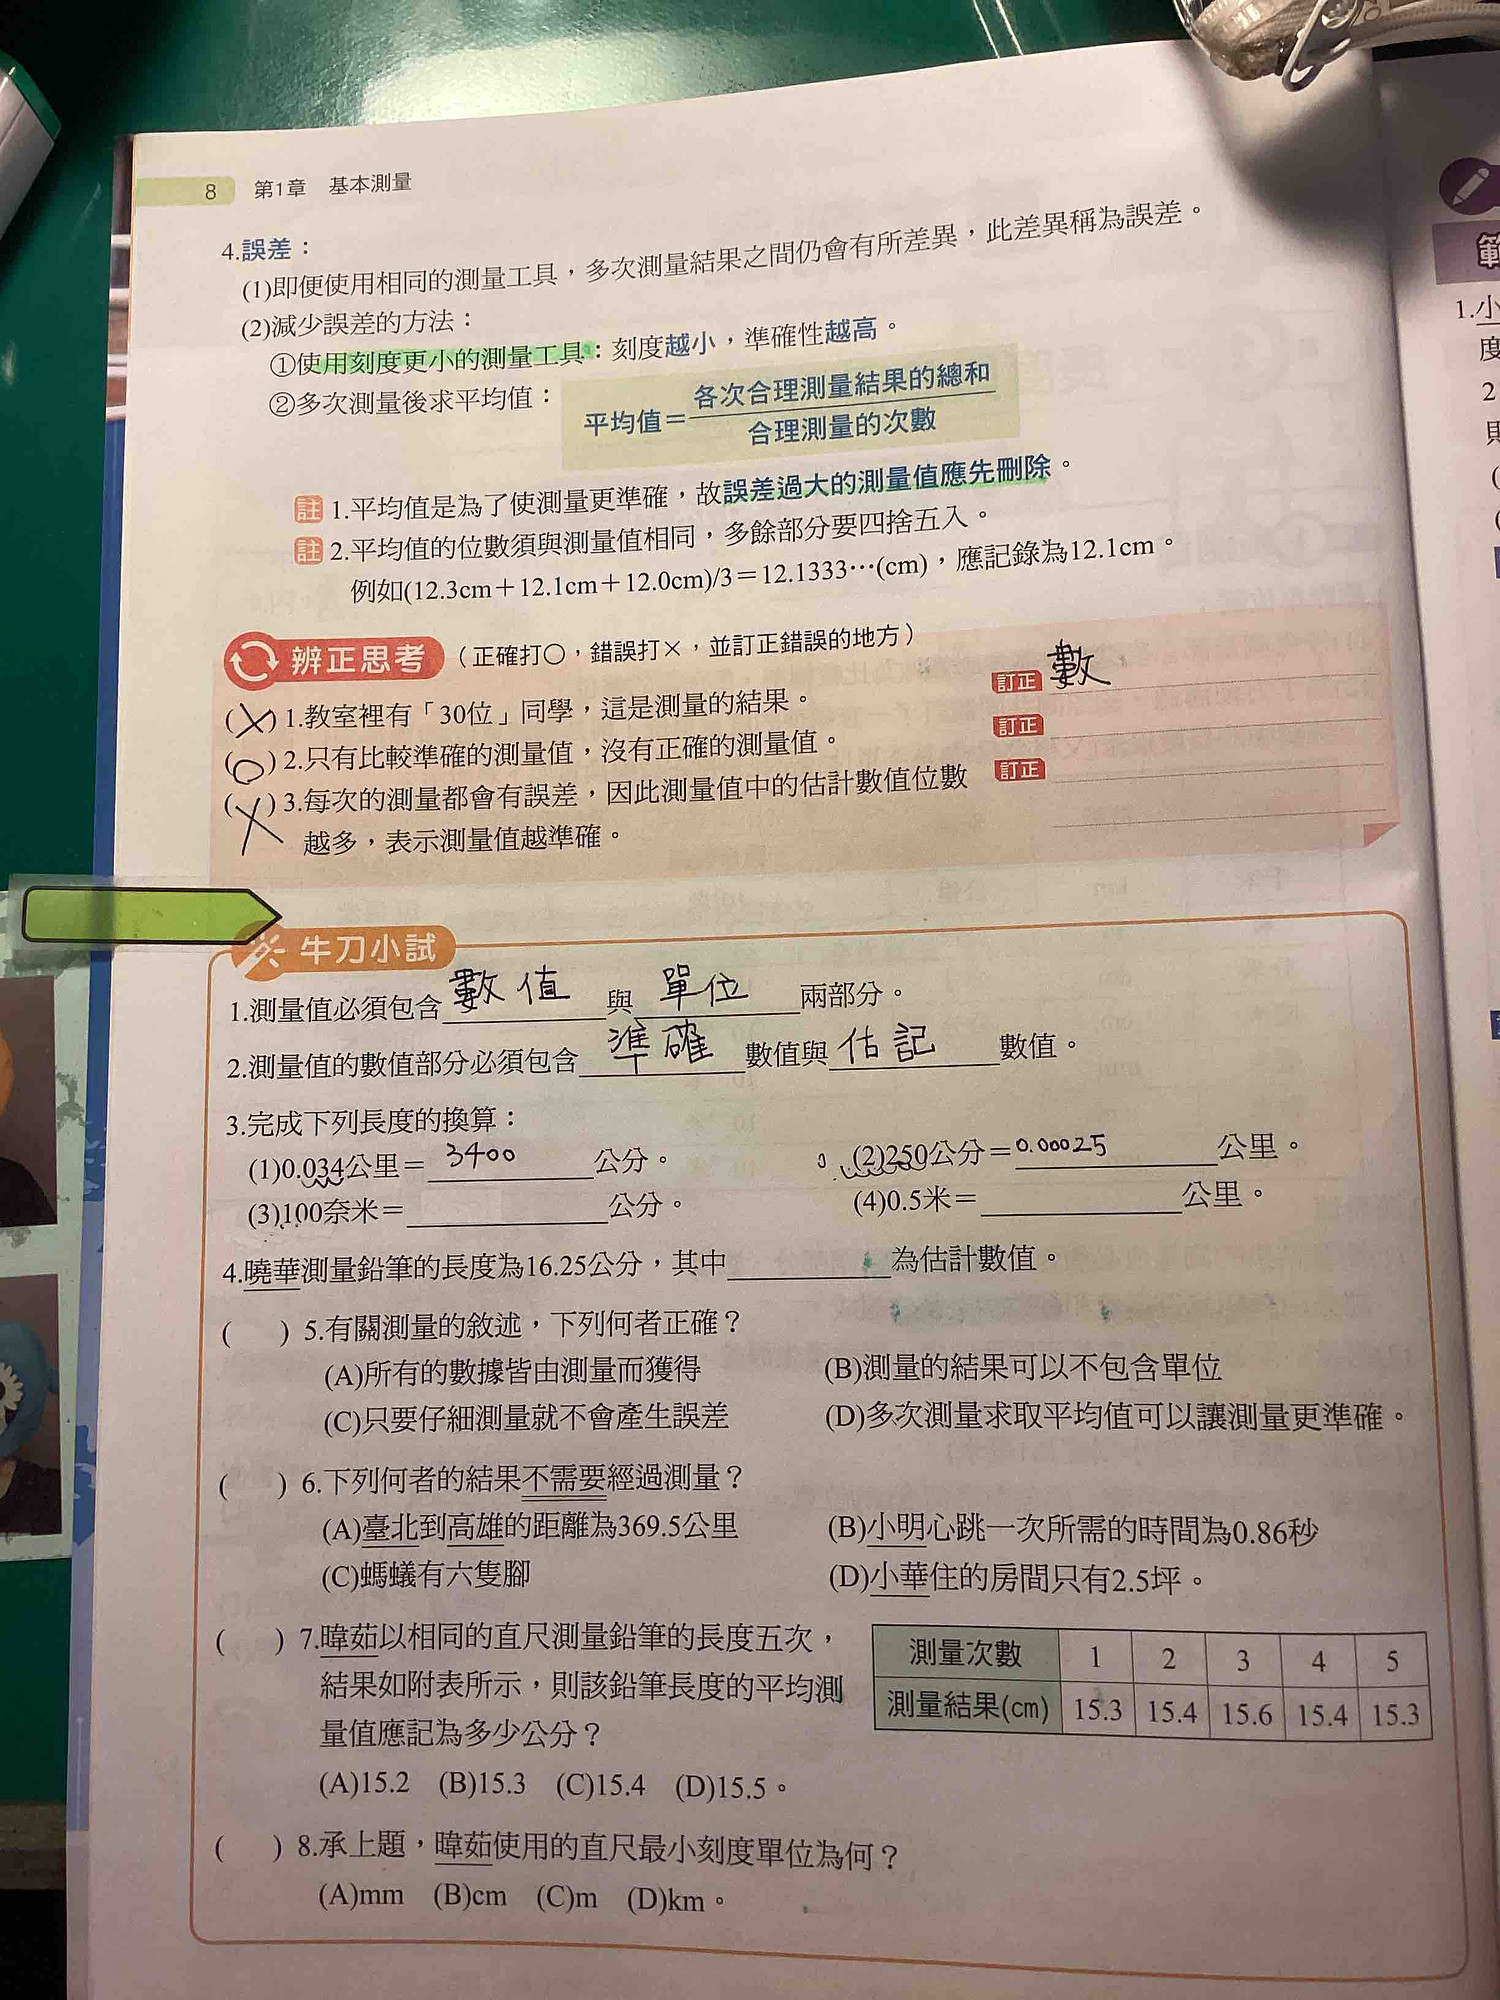 8 第1章 基本測量
4.誤差：
(1)即便使用相同的測量工具，多次測量結果之間仍會有所差異，此差異稱為誤差。
(2)減少誤差的方法：
①使用刻度更小的測量工具：刻度越小，準確性越高。
②多次測量後求平均值：
平均值＝各次合理測量結果的總和
合理測量的次數
註 1.平均值是為了使測量更準確，故誤差過大的測量值應先刪除。
註 2.平均值的位數須與測量值相同，多餘部分要四捨五入。
例如(12.3cm＋12.1cm＋12.0cm)/3＝12.1333…(cm)，應記錄為12.1cm。
辨正思考（正確打○，錯誤打×，並訂正錯誤的地方）
(X) 1.教室裡有「30位」同學，這是測量的結果。 訂正 數
(O) 2.只有比較準確的測量值，沒有正確的測量值。 訂正
(X) 3.每次的測量都會有誤差，因此測量值中的估計數值位數 訂正
越多，表示測量值越準確。
牛刀小試
1.測量值必須包含 數值 與 單位 兩部分。
2.測量值的數值部分必須包含 準確 數值與 估記 數值。
3.完成下列長度的換算：
(1)0.034公里＝ 3400 公分。 (2)250公分＝ 0.00025 公里。
(3)100奈米＝________公分。 (4)0.5米＝________公里。
4.曉華測量鉛筆的長度為16.25公分，其中________為估計數值。
( ) 5.有關測量的敘述，下列何者正確？
(A)所有的數據皆由測量而獲得 (B)測量的結果可以不包含單位
(C)只要仔細測量就不會產生誤差 (D)多次測量求取平均值可以讓測量更準確。
( ) 6.下列何者的結果不需要經過測量？
(A)臺北到高雄的距離為369.5公里 (B)小明心跳一次所需的時間為0.86秒
(C)螞蟻有六隻腳 (D)小華住的房間只有2.5坪。
( ) 7.暐茹以相同的直尺測量鉛筆的長度五次，
結果如附表所示，則該鉛筆長度的平均測
量值應記為多少公分？
測量次數 1 2 3 4 5
測量結果(cm) 15.3 15.4 15.6 15.4 15.3
(A)15.2 (B)15.3 (C)15.4 (D)15.5。
( ) 8.承上題，暐茹使用的直尺最小刻度單位為何？
(A)mm (B)cm (C)m (D)km。
範
1.小
度
2